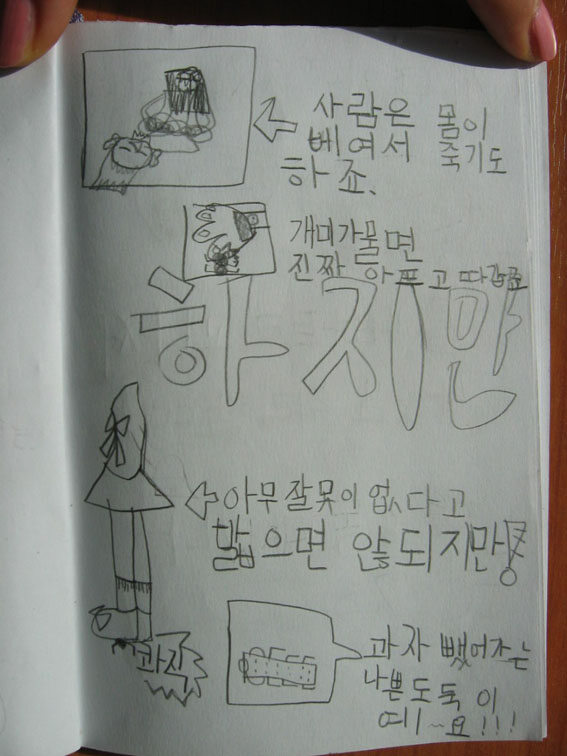 사람은 몸이
베여서 죽기도
하죠.
개미가물면
진짜 아프고 따갑고
하지만
아무잘못이 없다고
밟으면 않되지만!
콰직
과자 뺐어가는
나쁜도둑이
예~요!!!